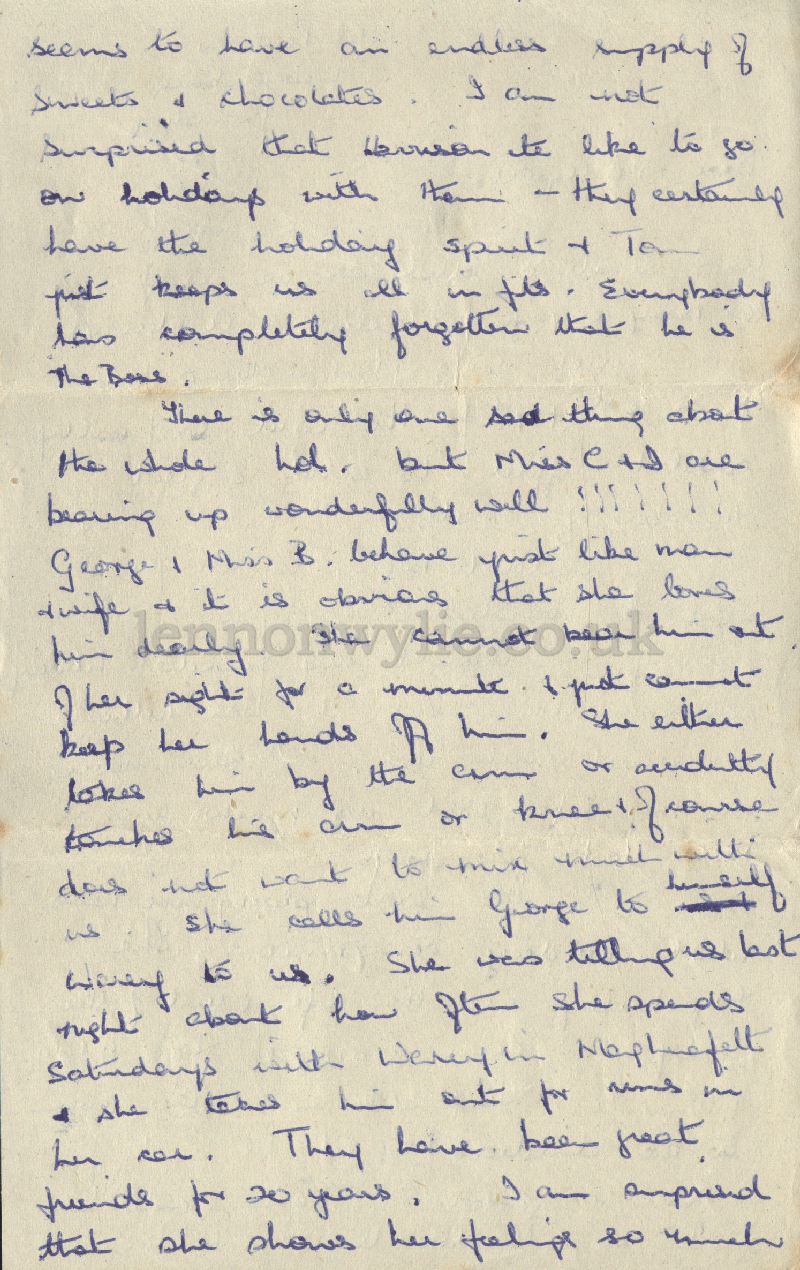 seems to have an endless supply of
sweets & chocolates. I am not
surprised that etc like to go
on holidays with them - they certainly
have the holiday spirit & Tom
just keeps us all in fits. Everybody
has completely forgotten that he is
The Boss.
There is only one sad thing about
the whole hol. but Miss C & I are
bearing up wonderfully well !!!!!!!
George & Miss B. behave just like man
& wife & it is obvious that she loves
him dearly. She cannot bear him out
of her sight for a minute & just cannot
keep her hands off him. She either
takes him by the arm or accidently
touches his arm or knee & of course
does not want to mix much with
us. She calls him George to himself
to us. She was telling us last
night about how often she spends
Saturdays with in Magherafelt
& she takes him out for runs in
her car. They have been great
friends for 20 years. I am surprised
that she shows her feelings so much
lennonwylie.co.uk